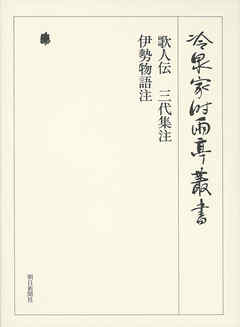 冷泉家時雨亭叢書
歌人伝 三代集注
伊勢物語注
朝日新聞社